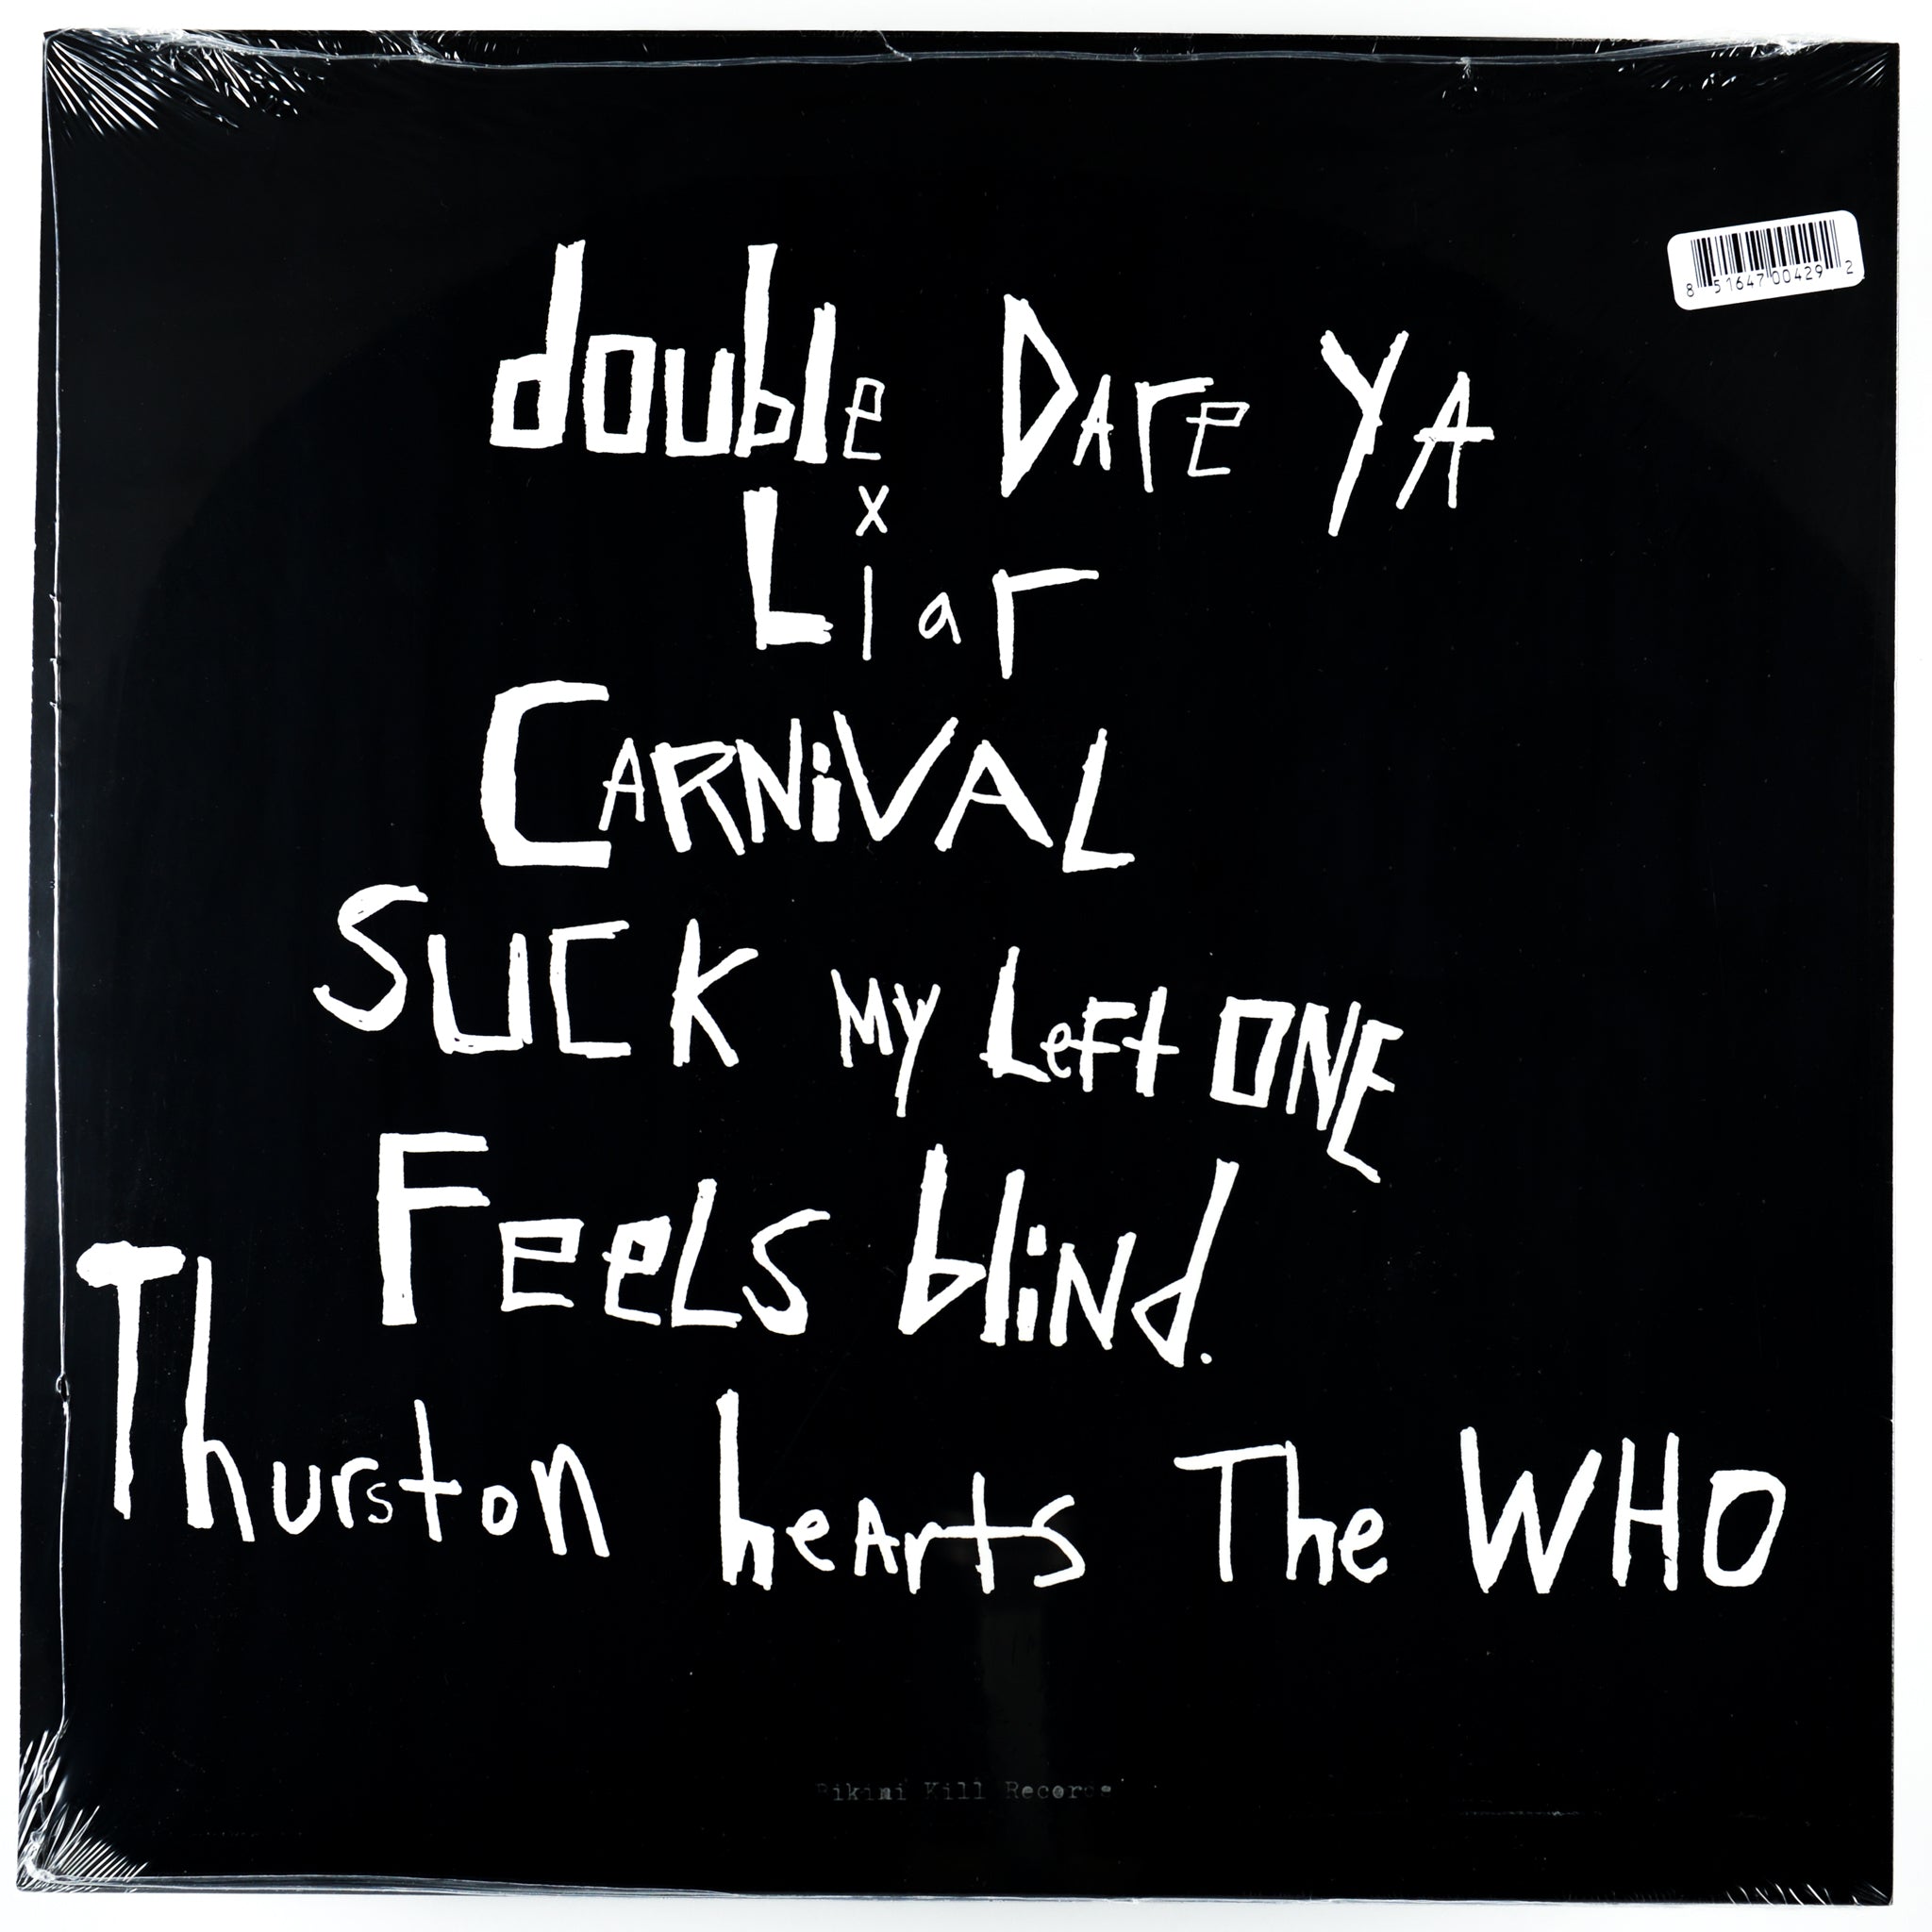 double DAre YA
Liar
CARNiVAL
SUCK MY LeFt ONE
FeeLS bliNd.
Thurston heArts The WHO
Bikini Kill Records
8 51647 00429 2